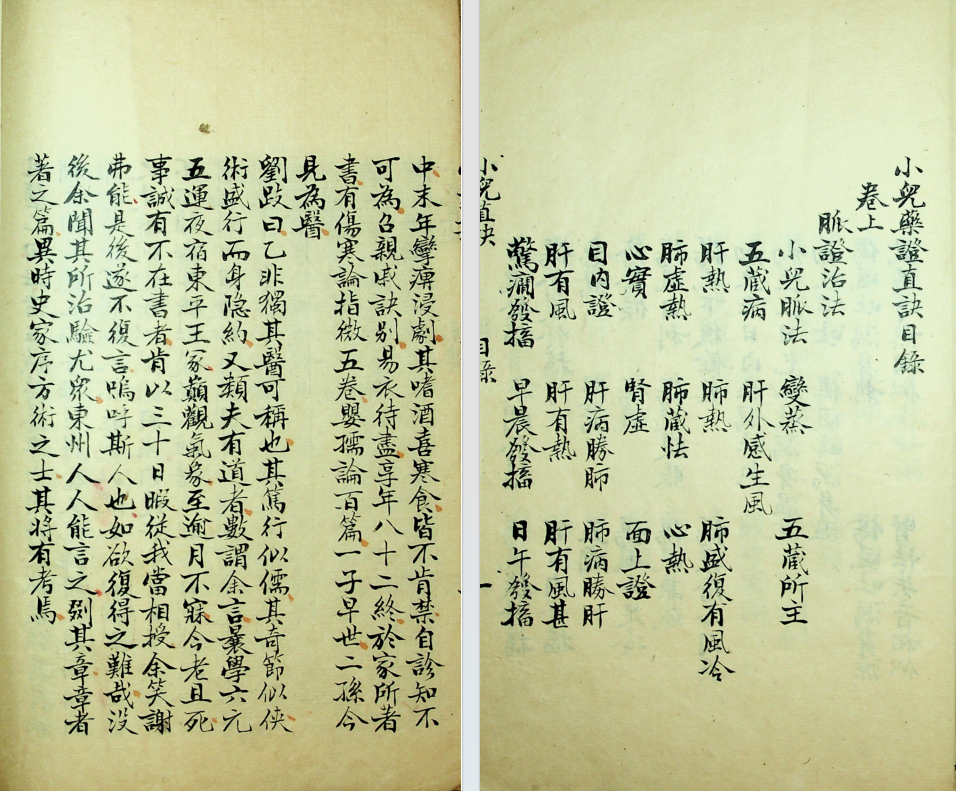 小兒藥證直訣目錄
卷上
脈證治法
小兒脈法 變蒸 五蔵所主
五蔵病 肝外感生風
肝熱 肺熱 肺盛復有風冷
肺虛熱 肺蔵怯 心熱
心實 腎虛 面上證
目内證 肝病勝肺 肺病勝肝
肝有風 肝有熱 肝有風甚
驚癇發搐 早晨發搐 日午發搐
小兒直訣 目錄 一
中末年攣痹浸劇其嗜酒喜寒食皆不肯禁自診知不
可為召親戚訣别易衣待盡享年八十二終於家所著
書有傷寒論指微五卷嬰孺論百篇一子早世二孫今
見為醫
劉跂曰乙非獨其醫可稱也其篤行似儒其奇節似俠
術盛行而身隐約又類夫有道者數謂余言曩學六元
五運夜宿東平王冢巔觀氣象至逾月不寐今老且死
事誠有不在書者肯以三十日暇從我當相授余笑謝
弗能是後遂不復言嗚呼斯人也如欲復得之難哉没
後余聞其所治驗尤衆東州人人能言之剟其章章者
著之篇異時史家序方術之士其將有考焉